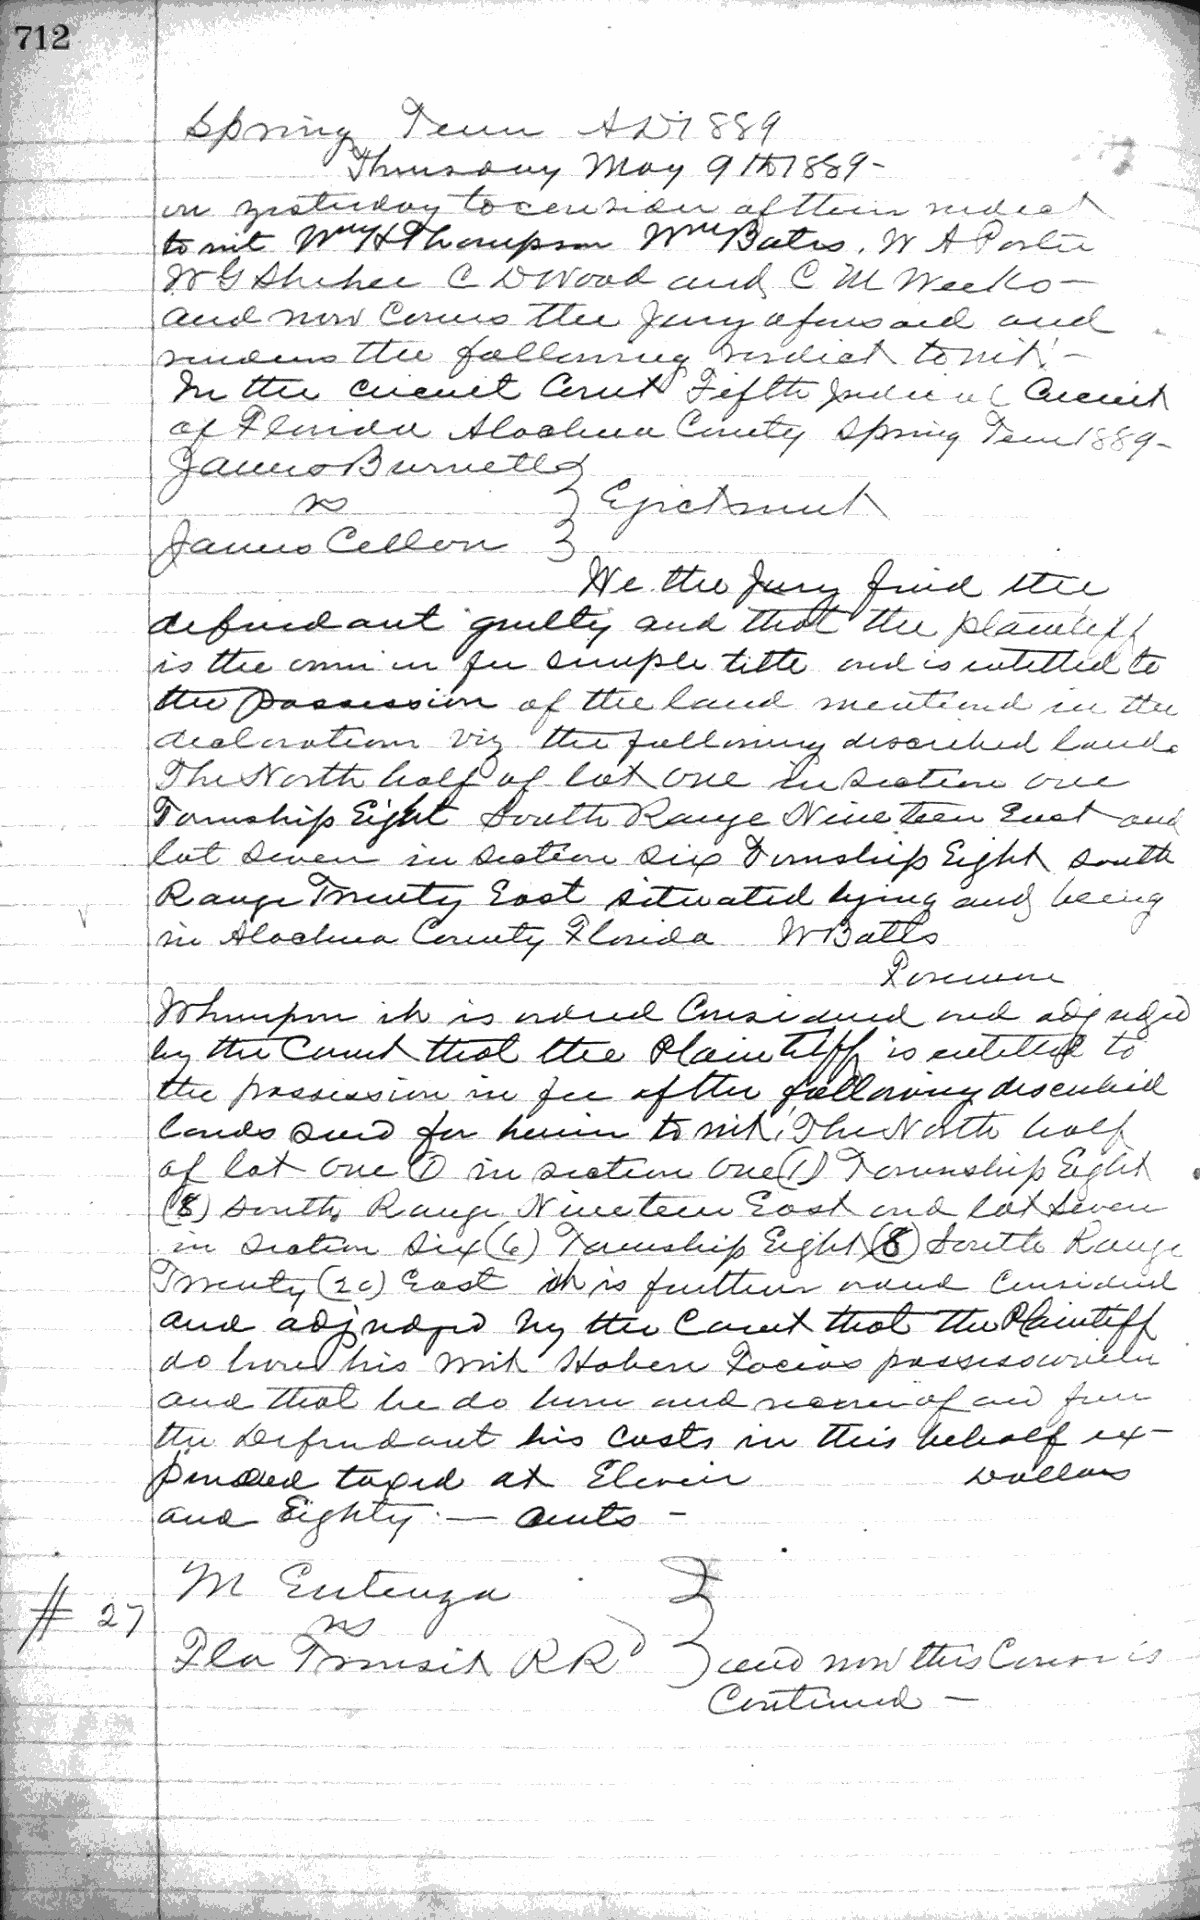 712
Spring Term AD 1889
Thursday May 9th 1889-
on yesterday to consider of their verdict
to wit Wm H Thompson Wm Bates, W A Porter
W G Shehee C D Wood and C M Weeks-
and now Comes the Jury aforesaid and
renders the following verdict to wit:-
In the circuit Court Fifth Judicial Circuit
of Florida Alachua County Spring Term 1889-
James Burnett
vs } Ejectment
James Cellon
We the Jury find the
defendant guilty and that the plaintiff
is the owner in fee simple title and is entitled to
the possession of the land mentioned in the
declaration viz the following discribed lands
The North half of lot one in section one
Township Eight South Range Nineteen East and
lot seven in section six Township Eight south
Range Twenty East situated lying and being
in Alachua County Florida W Batts
Foreman
Whereupon it is ordered Considered and adjudged
by the Court that the Plaintiff is entitled to
the possession in fee of the following discribed
lands sued for herein to wit; The North half
of lot one (1) in section One (1) Township Eight
(8) south, Range Nineteen East and lot Seven
in section Six (6) Township Eight (8) South Range
Twenty (20) East it is further ordered Considered
and adjudged by the Court that the Plaintiff
do have his writ Habere Facias possessionem
and that he do have and recover of and from
the Defendant his Costs in this behalf ex-
pended taxed at Eleven Dollars
and Eighty - cents -
M Entenza
# 27 vs
Fla Transit RRd } and now this Cause is
Continued -